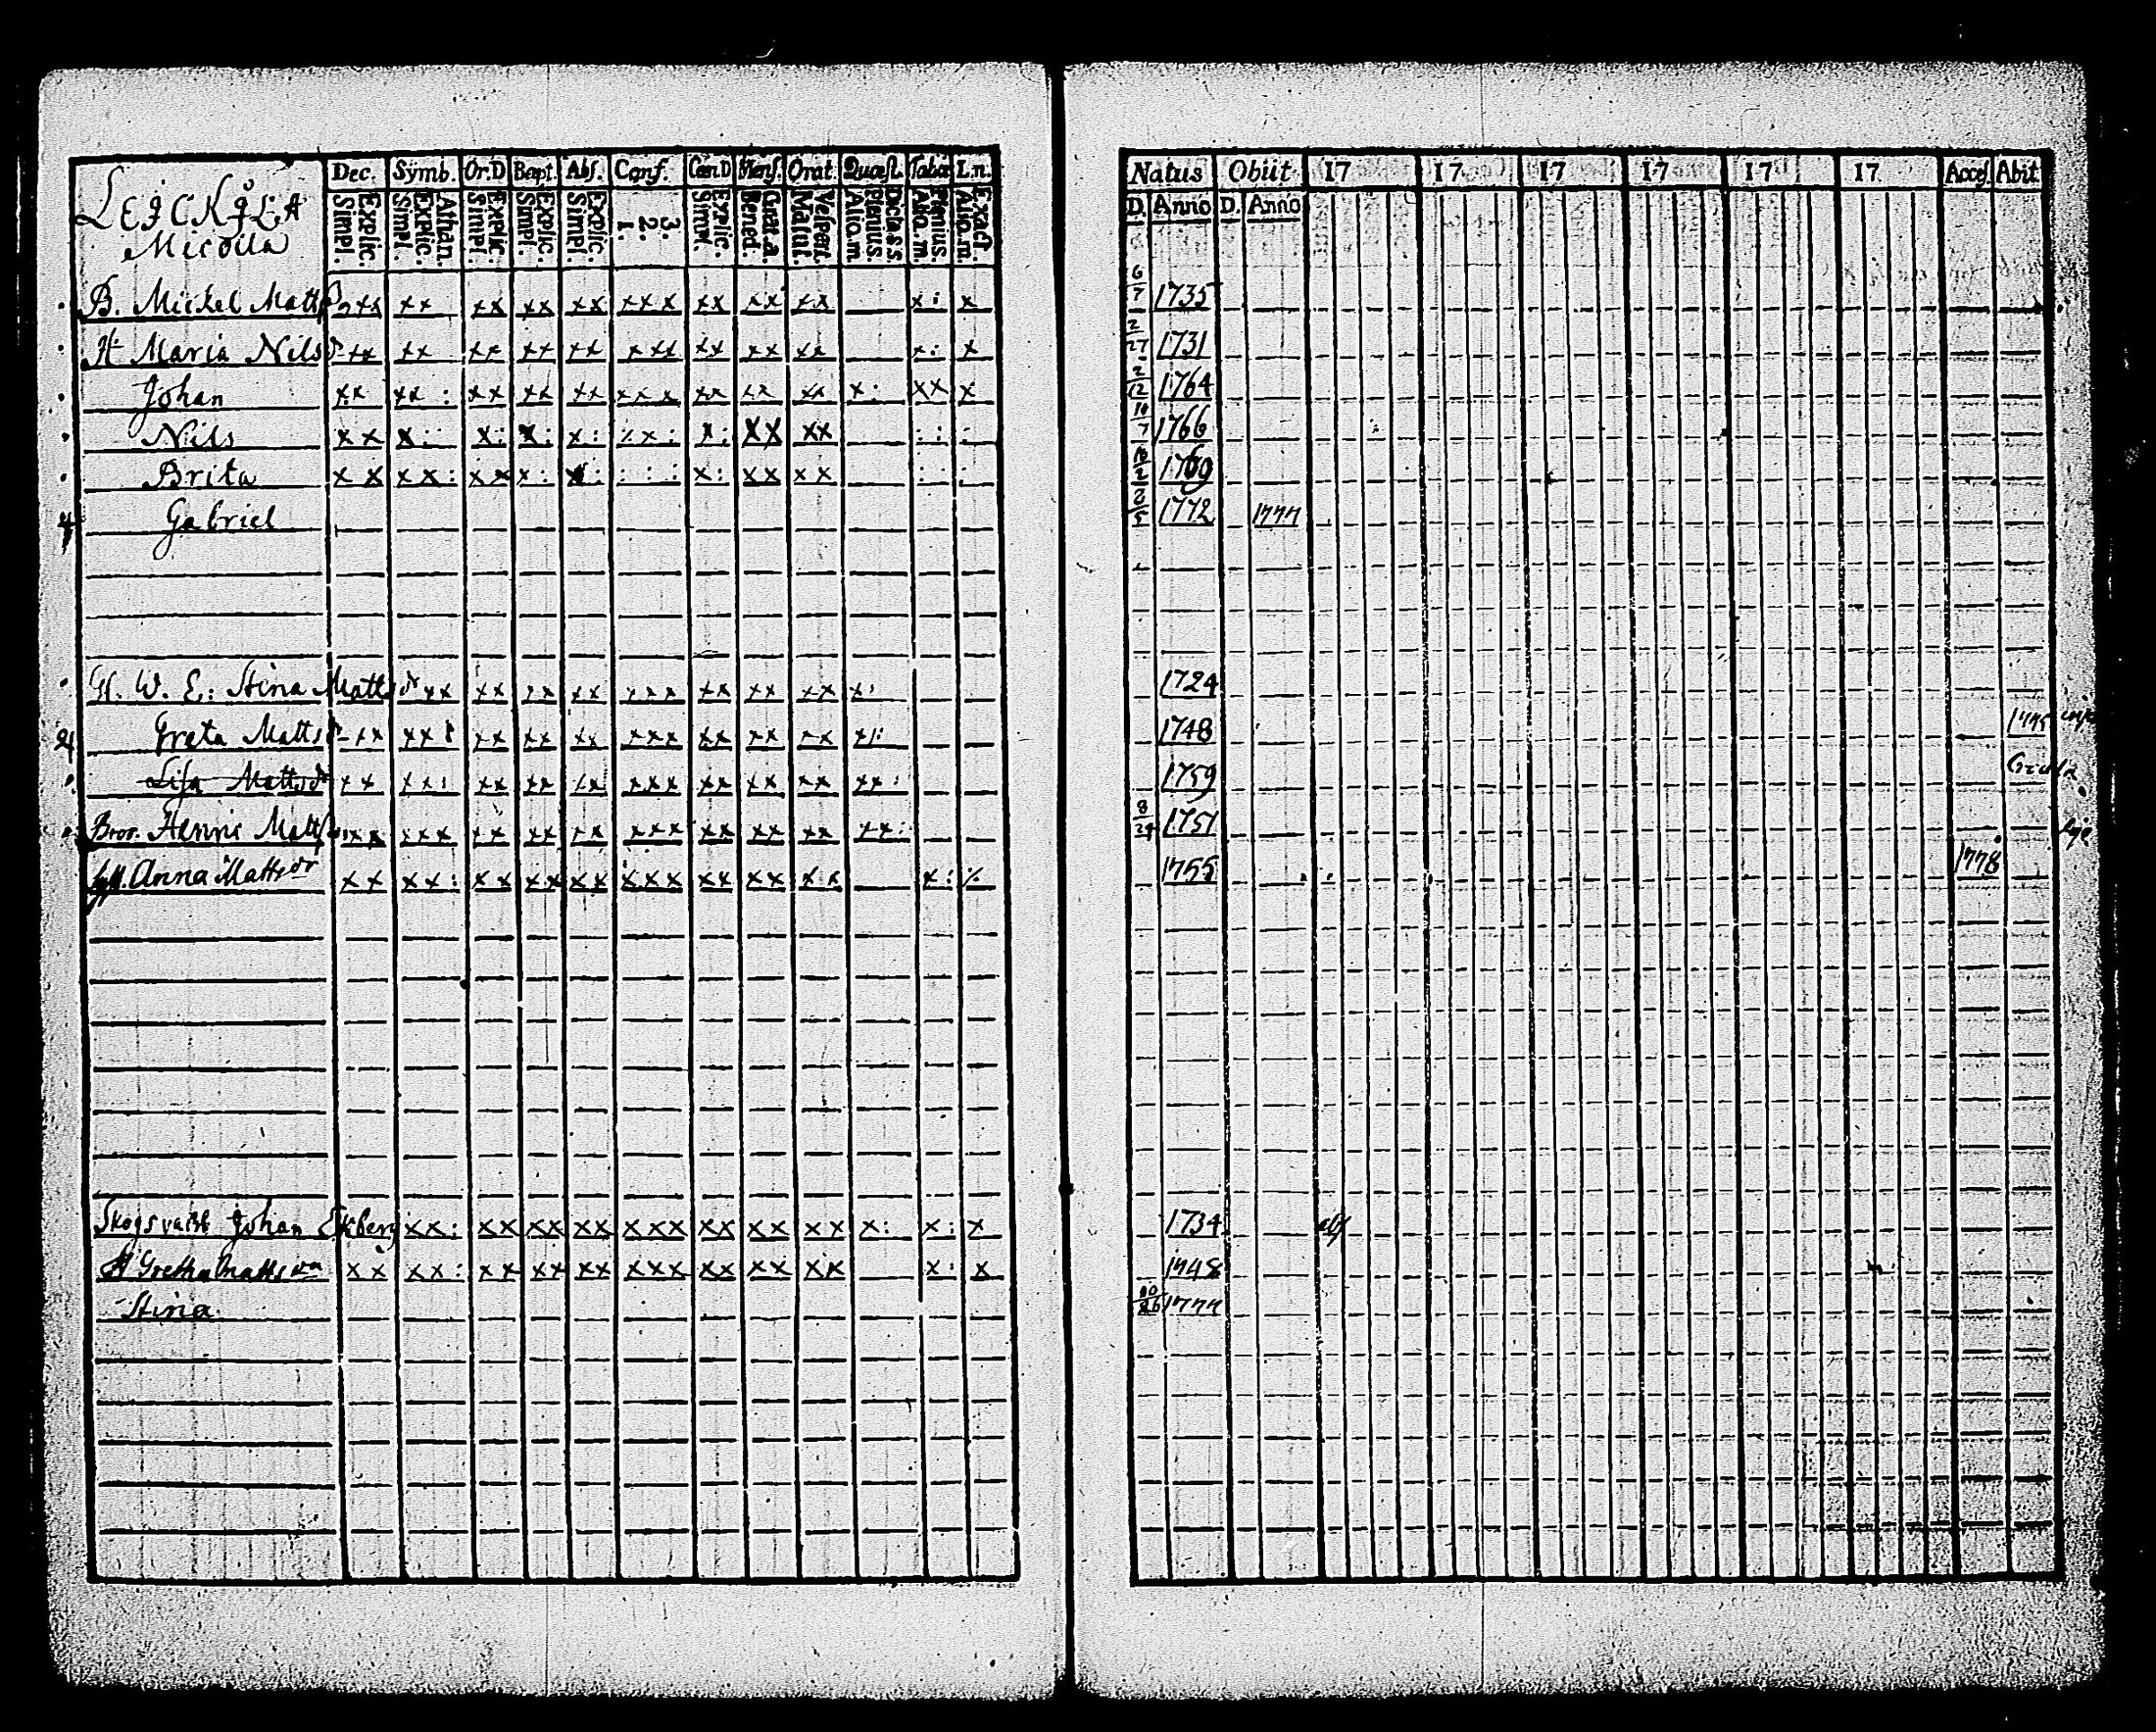 Dec. Symb. Or.D Bapt. Abs. Conf. Cœn.D Mens. Orat. Quæst. Tabœ L.n. Natus Obiit 17 17 17 17 17 17 Acces Abit
Explic. Simpl. Athan. Explic. Simpl. Explic. Simpl. Explic. Simpl. Explic. Simpl. 3. 2. 1. Explic. Simpl. Grat.a. Bened. Vespert. Matut. Dicta s.s. Plenius. Aliq.m Plenius. Aliq.m. Exact. Aliq.m. D. Anno D. Anno
Micoila
B. Mickel Matts xx xx xx xx xx xxx xx xx xx x: x 6/7 1735
H. Maria Nils dr xx xx xx xx xx xxx xx xx xx x: x 2/27 1731
Johan xx xx: xx xx xx xxx xx xx xx x: xx x 2/12 1764
Nils xx x: x: x: x: xx: x: xx xx : : : 1766
Brita xx xx: xx x: x: : : : x: xx xx : : : 1769
4 Gabriel 1772 1777
W. E: Stina Matts dr xx xx xx xx xxx xx xx xx x: 1724
Greta Matts dr xx xx: xx xx xx xxx xx xx xx x: 1748 1775
Lisa Matts dr xx xx: xx xx xx xxx xx xx xx xx: 1759
Bror. Henric Matts xx xxx xx xx xx xxx xx xx xx xx: 8/24 1751
Anna Matts dr xx xx: xx xx xx xxx xx xx xx x: x 1755 1778
Skogsvackt Johan Ekberg xx: xx xx xx xxx xx xx xx x: x: x 1734 abs
H Gretha Matts dr xx xx: xx xx xx xxx xx xx xx x: x 1748
Stina 10/26 1777